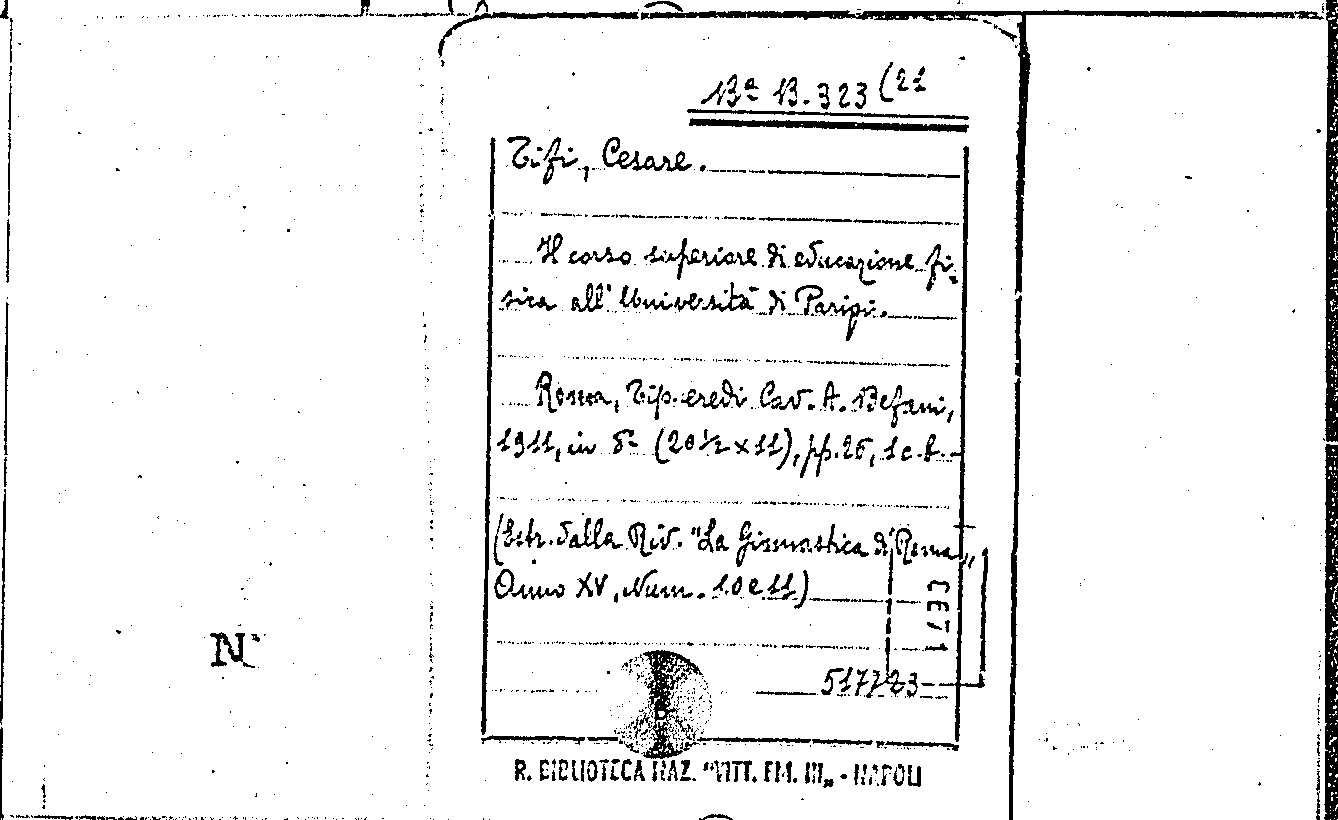 Bª B. 323 (21
Tifi, Cesare.
Il corso superiore di educazione fi-
sica all'Università di Parigi.
Roma, Tip. eredi Cav. A. Befani,
1911, in 8º (20½ x 11), pp. 26, 1 c. b.
(Estr. dalla Riv. "La Ginnastica di Roma„
Anno XV, Num. 10 e 11)
517723
N
R. BIBLIOTECA NAZ. "VITT. EM. III„ - NAPOLI